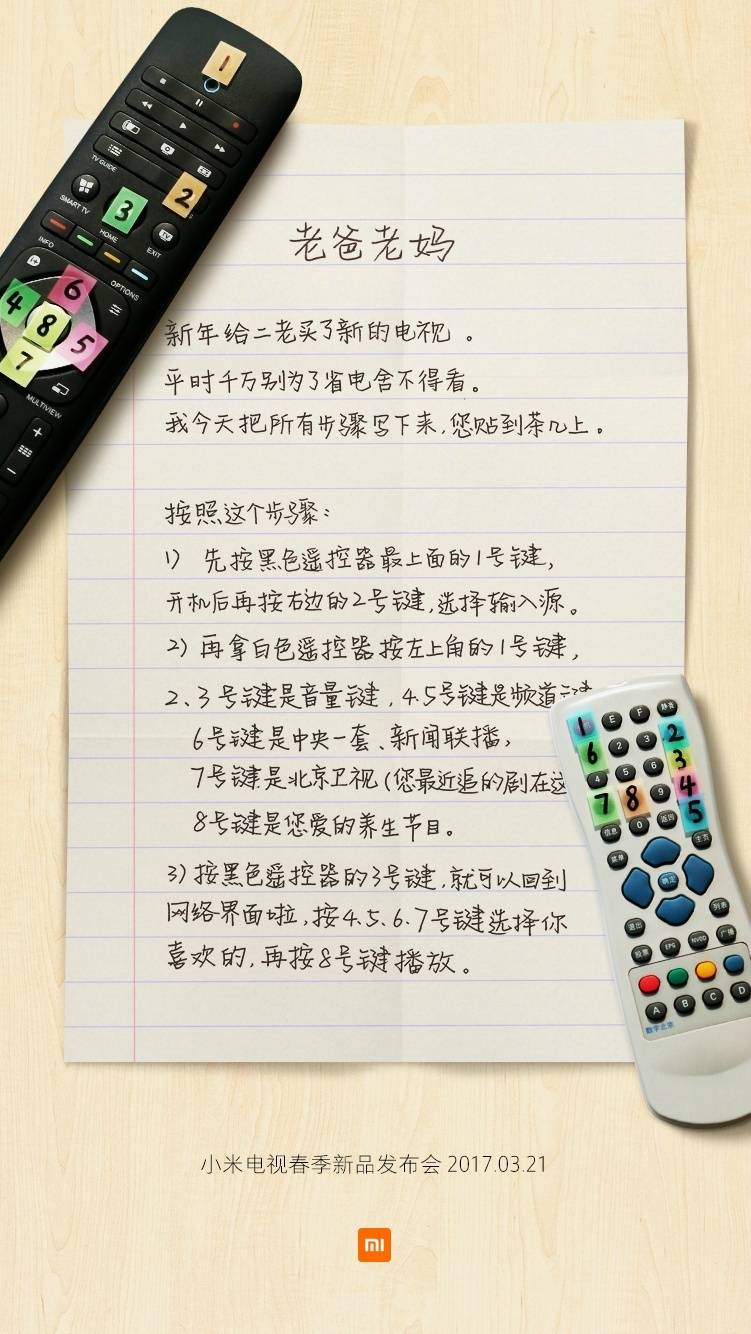 老爸老妈
新年给二老买了新的电视。
平时千万别为了省电舍不得看。
我今天把所有步骤写下来,您贴到茶几上。
按照这个步骤:
1) 先按黑色遥控器最上面的1号键,
开机后再按右边的2号键,选择输入源。
2) 再拿白色遥控器按左上角的1号键,
2、3号键是音量键,4.5号键是频道键
6号键是中央一套、新闻联播,
7号键是北京卫视(您最近追的剧在这
8号键是您爱的养生节目。
3)按黑色遥控器的3号键,就可以回到
网络界面啦,按4.5.6.7号键选择你
喜欢的,再按8号键播放。
1
TV GUIDE
2
SMART TV
3
HOME
EXIT
INFO
OPTIONS
6
4
8
5
7
MULTIVIEW
+
-
1
E
F
静音
2
3
2
6
3
4
5
6
7
8
9
4
信息
0
返回
5
菜单
主页
确定
退出
列表
股票
EPG
NVOD
广播
A
B
C
D
数字北京
小米电视春季新品发布会 2017.03.21
mi